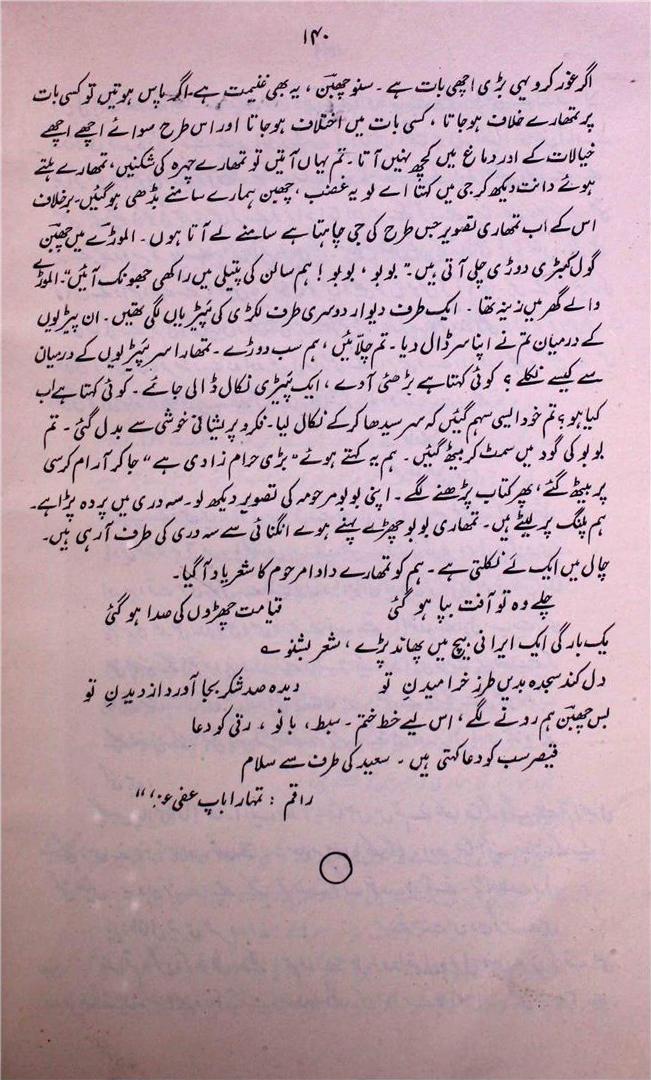 ۱۴۰
اگر غور کرو یہی بڑی اچھی بات ہے ۔ سنو چھبّن ، یہ بھی غنیمت ہے۔ اگر پاس ہوتیں تو کسی بات
پر تمھارے خلاف ہوجاتا ، کسی بات میں اختلاف ہوجاتا اور اس طرح سوائے اچھے اچھے
خیالات کے اور دماغ میں کچھ نہیں آتا ۔ تم یہاں آتیں تو تمھارے چہرہ کی شکنیں، تمھارے ہلتے
ہوئے دانت دیکھ کر جی میں کہتا اے لو یہ غضب ، چھبن ہمارے سامنے بڈھی ہوگئیں۔ برخلاف
اس کے اب تمھاری تصویر جس طرح کی جی چاہتا ہے سامنے لے آتا ہوں ۔ الموڑے میں چھبّن
گول گمبڑی دوڑی چلی آتی ہیں۔ "بوبو ، بوبو ! ہم سالن کی پتیلی میں راکھی جھونک آئیں"۔ الموڑے
والے گھر میں زینہ تھا ۔ ایک طرف دیوار دوسری طرف لکڑی کی پٹریاں لگی تھیں ۔ ان پٹریوں
کے درمیان تم نے اپنا سر ڈال دیا ۔ تم چلّائیں ، ہم سب دوڑے ۔ تمھارا سر پٹریوں کے درمیان
سے کیسے نکلے ؟ کوئی کہتا ہے بڑھئی آدے ، ایک پٹری نکال ڈالی جائے ۔ کوئی کہتا ہے اب
کیا ہو ؟ تم خود ایسی سہم گئیں کہ سر سیدھا کرکے نکال لیا۔ فکر و پریشانی خوشی سے بدل گئی ۔ تم
بوبو کی گود میں سمٹ کر بیٹھ گئیں ۔ ہم یہ کہتے ہوئے "بڑی حرام زادی ہے" جا کر آرام کرسی
پر بیٹھ گئے ، پھر کتاب پڑھنے لگے ۔ اپنی بوبو مرحومہ کی تصویر دیکھ لو۔ سہ دری میں پردہ پڑا ہے۔
ہم پلنگ پر لیٹے ہیں۔ تمھاری بوبو چھڑے پہنے ہوے انگنائی سے سہ دری کی طرف آ رہی ہیں۔
چال میں ایک لَے نکلتی ہے۔ ہم کو تمھارے دادا مرحوم کا شعر یاد آگیا۔
چلے وہ تو آفت بپا ہو گئی قیامت چھڑوں کی صدا ہو گئی
یک بارگی ایک ایرانی بیچ میں پھاند پڑے ، شعر بشنو ؎
دل کند سجدہ بدیں طرزِ خرامیدنِ تو دیدہ صد شکر بجا آورد از دیدنِ تو
بس چھبّن ہم رونے لگے ، اس لیے خط ختم ۔ سبط ، بانو ، رنی کو دعا
قیصر سب کو دعا کہتی ہیں ۔ سعید کی طرف سے سلام
راقم : تمہارا باپ عفی عنہ"